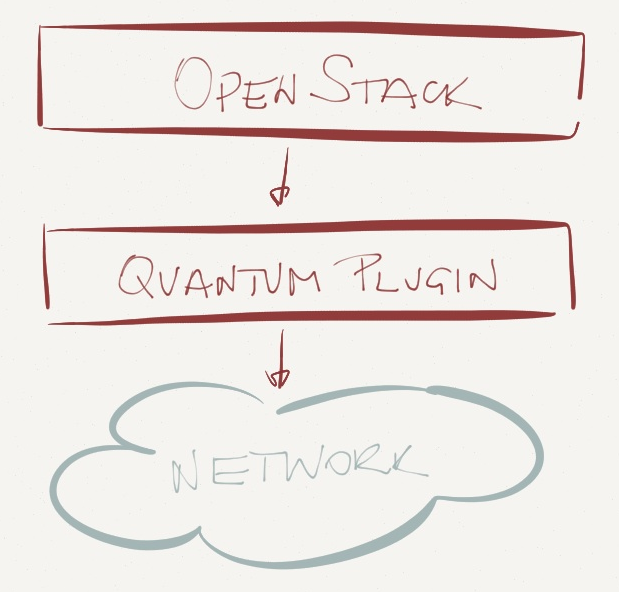 OPEN STACK
QUANTUM PLUGIN
NETWORK